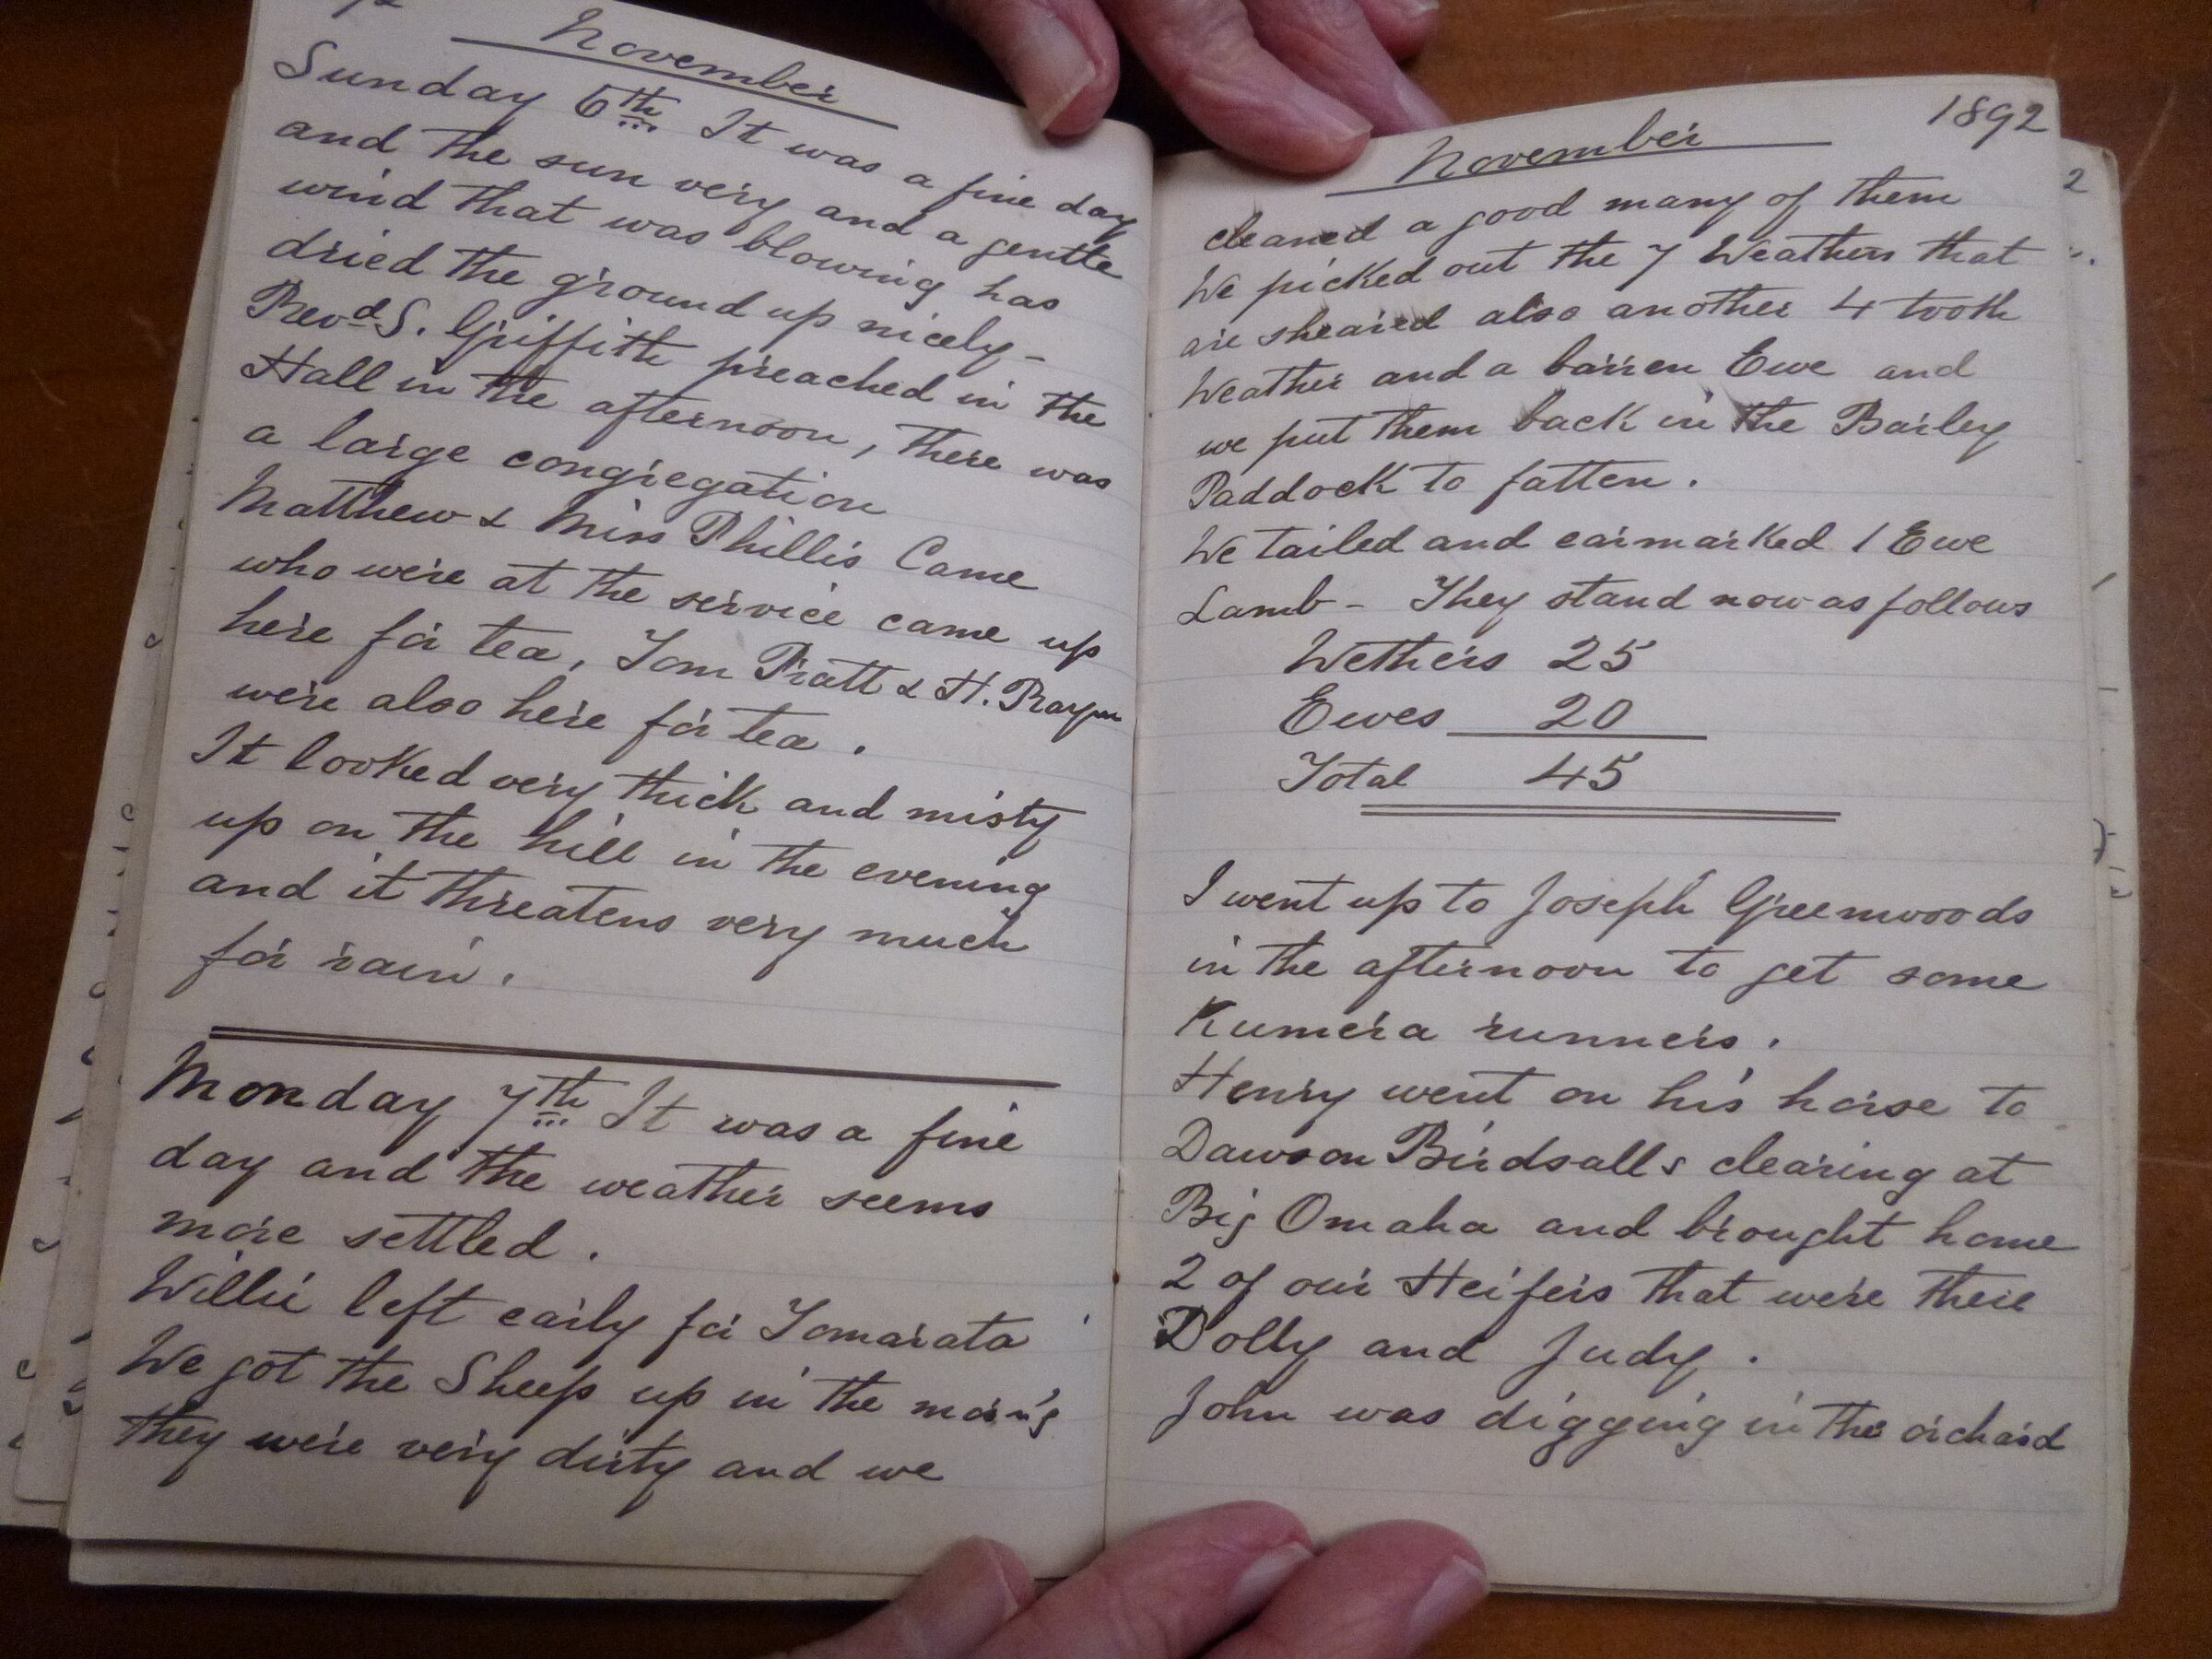 November
Sunday 6th It was a fine day
and the sun very and a gentle
wind that was blowing has
dried the ground up nicely -
Revd S. Griffith preached in the
Hall in the afternoon, there was
a large congregation
Matthew & Miss Phillis Came
who were at the service came up
here for tea, Tom Pratt & H.
were also here for tea.
It looked very thick and misty
up on the hill in the evening
and it threatens very much
for rain.
Monday 7th It was a fine
day and the weather seems
more settled.
Willie left early for Tomarata
We got the Sheep up in the morn'g
they were very dirty and we
1892
November
cleaned a good many of them
We picked out the 7 Weathers that
are sheared also another 4 tooth
Weather and a barren Ewe and
we put them back in the Barley
Paddock to fatten.
We tailed and earmarked 1 Ewe
Lamb - They stand now as follows
Wethers 25
Ewes 20
Total 45
I went up to Joseph Greenwoods
in the afternoon to get some
Kumera runners.
Henry went on his horse to
Dawson Birdsalls clearing at
Big Omaha and brought home
2 of our Heifers that were there
Dolly and Judy.
John was digging in the orchard